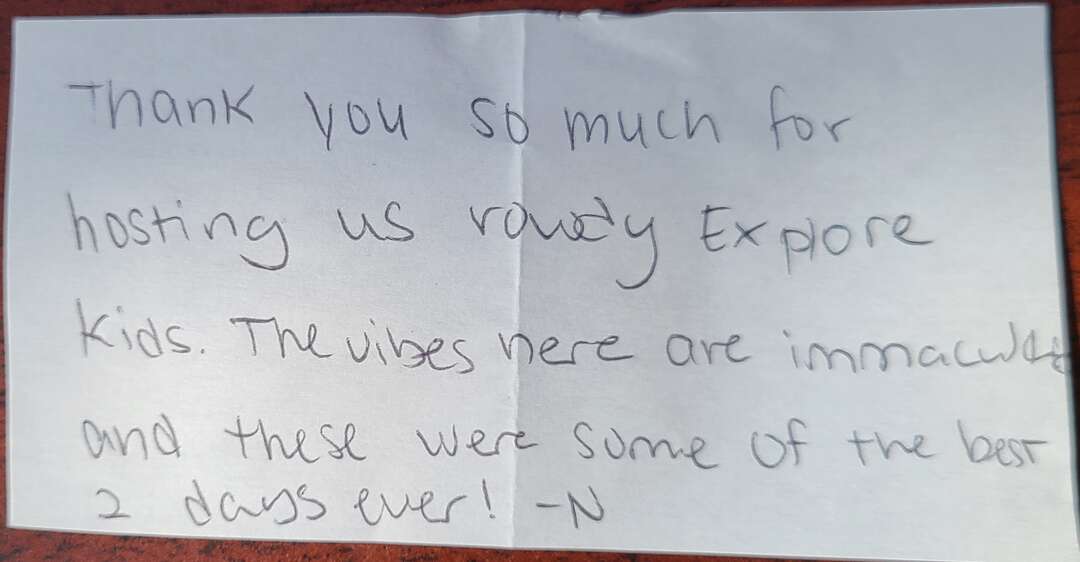 Thank you so much for
hosting us rowdy Explore
kids. The vibes here are immaculate
and these were some of the best
2 days ever! -N